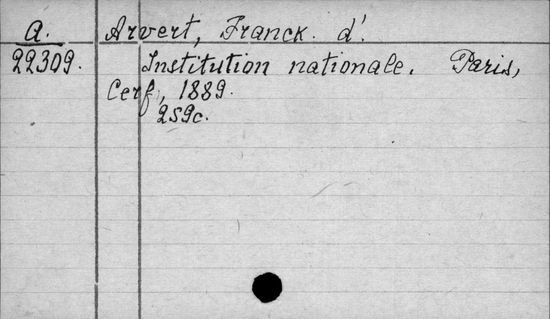 A. Arvert, Franck. d'.
22309. Institution nationale. Paris,
Cerf, 1889.
259c.